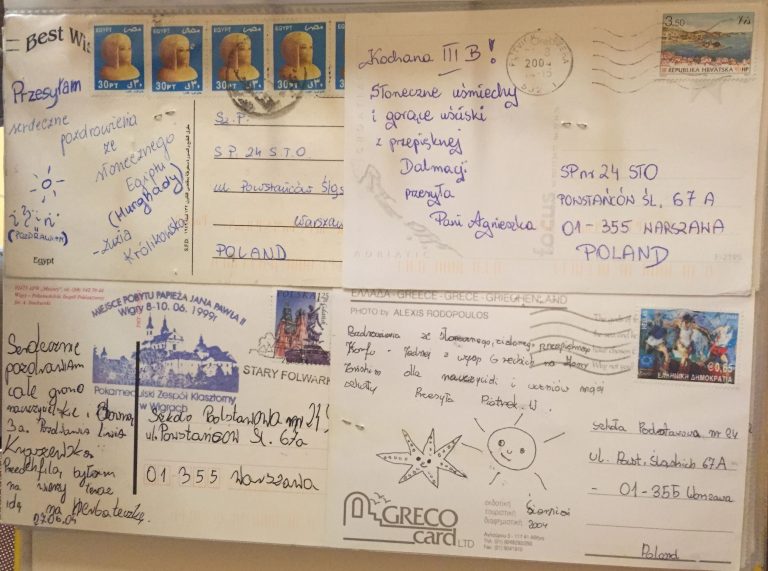 Best Wi
EGYPT
EGYPT
EGYPT
EGYPT
30PT ٣٠ق
30PT ٣٠ق
30PT ٣٠ق
30PT ٣٠ق
Przesyłam
serdeczne
pozdrowienia
ze
słonecznego
Egiptu
(Hurghady)
(POZDRAWIAM)
- Zuzia
Królikowska
Egypt
Sz.P.
S P. 24 S.T.O.
ul. Powstańców Śląs
Warszaw
POLAND
Kochana III B!
Słoneczne uśmiechy
i gorące uściski
z przepięknej
Dalmacji
przesyła
Pani Agnieszka
2004
3,50
REPUBLIKA HRVATSKA
HP
focus
SP nr 24 STO
POWSTAŃCÓW ŚL. 67 A
01-355 WARSZAWA
POLAND
MIEJSCE POBYTU PAPIEŻA JANA PAWŁA II
Wigry 8-10. 06. 1999r.
Pokamedulski Zespół Klasztorny
w Wigrach
POLSKA
STARY FOLWARK
Serdecznie
pozdrawiam
całe grono
nauczycielskie i
3a. Pozdrawia
Kraszewska
Przed chwilą byłam
na wieży teraz
idę na herbateczkę.
Szkoła Podstawowa nr 24
ul. Powstańców Śl. 67a
01-355 Warszawa
ΕΛΛΑΔΑ - GREECE - GRECE - GRIECHENLAND
PHOTO by ALEXIS RODOPOULOS
Pozdrowienia ze słonecznego, zielonego, przepięknego
Korfu - jednej z wysp Greckich na
Jońskim dla nauczycieli i uczniów mojej
szkoły
Przesyła Piotrek W.
€0,65
ΕΛΛΗΝΙΚΗ ΔΗΜΟΚΡΑΤΙΑ
GRECO
card LTD
εκδοτική
τουριστική
διαφημιστική
Sierpień
2004
Szkoła Podstawowa nr 24
ul. Powst. Śląskich 67A
- 01-355 Warszawa
Poland